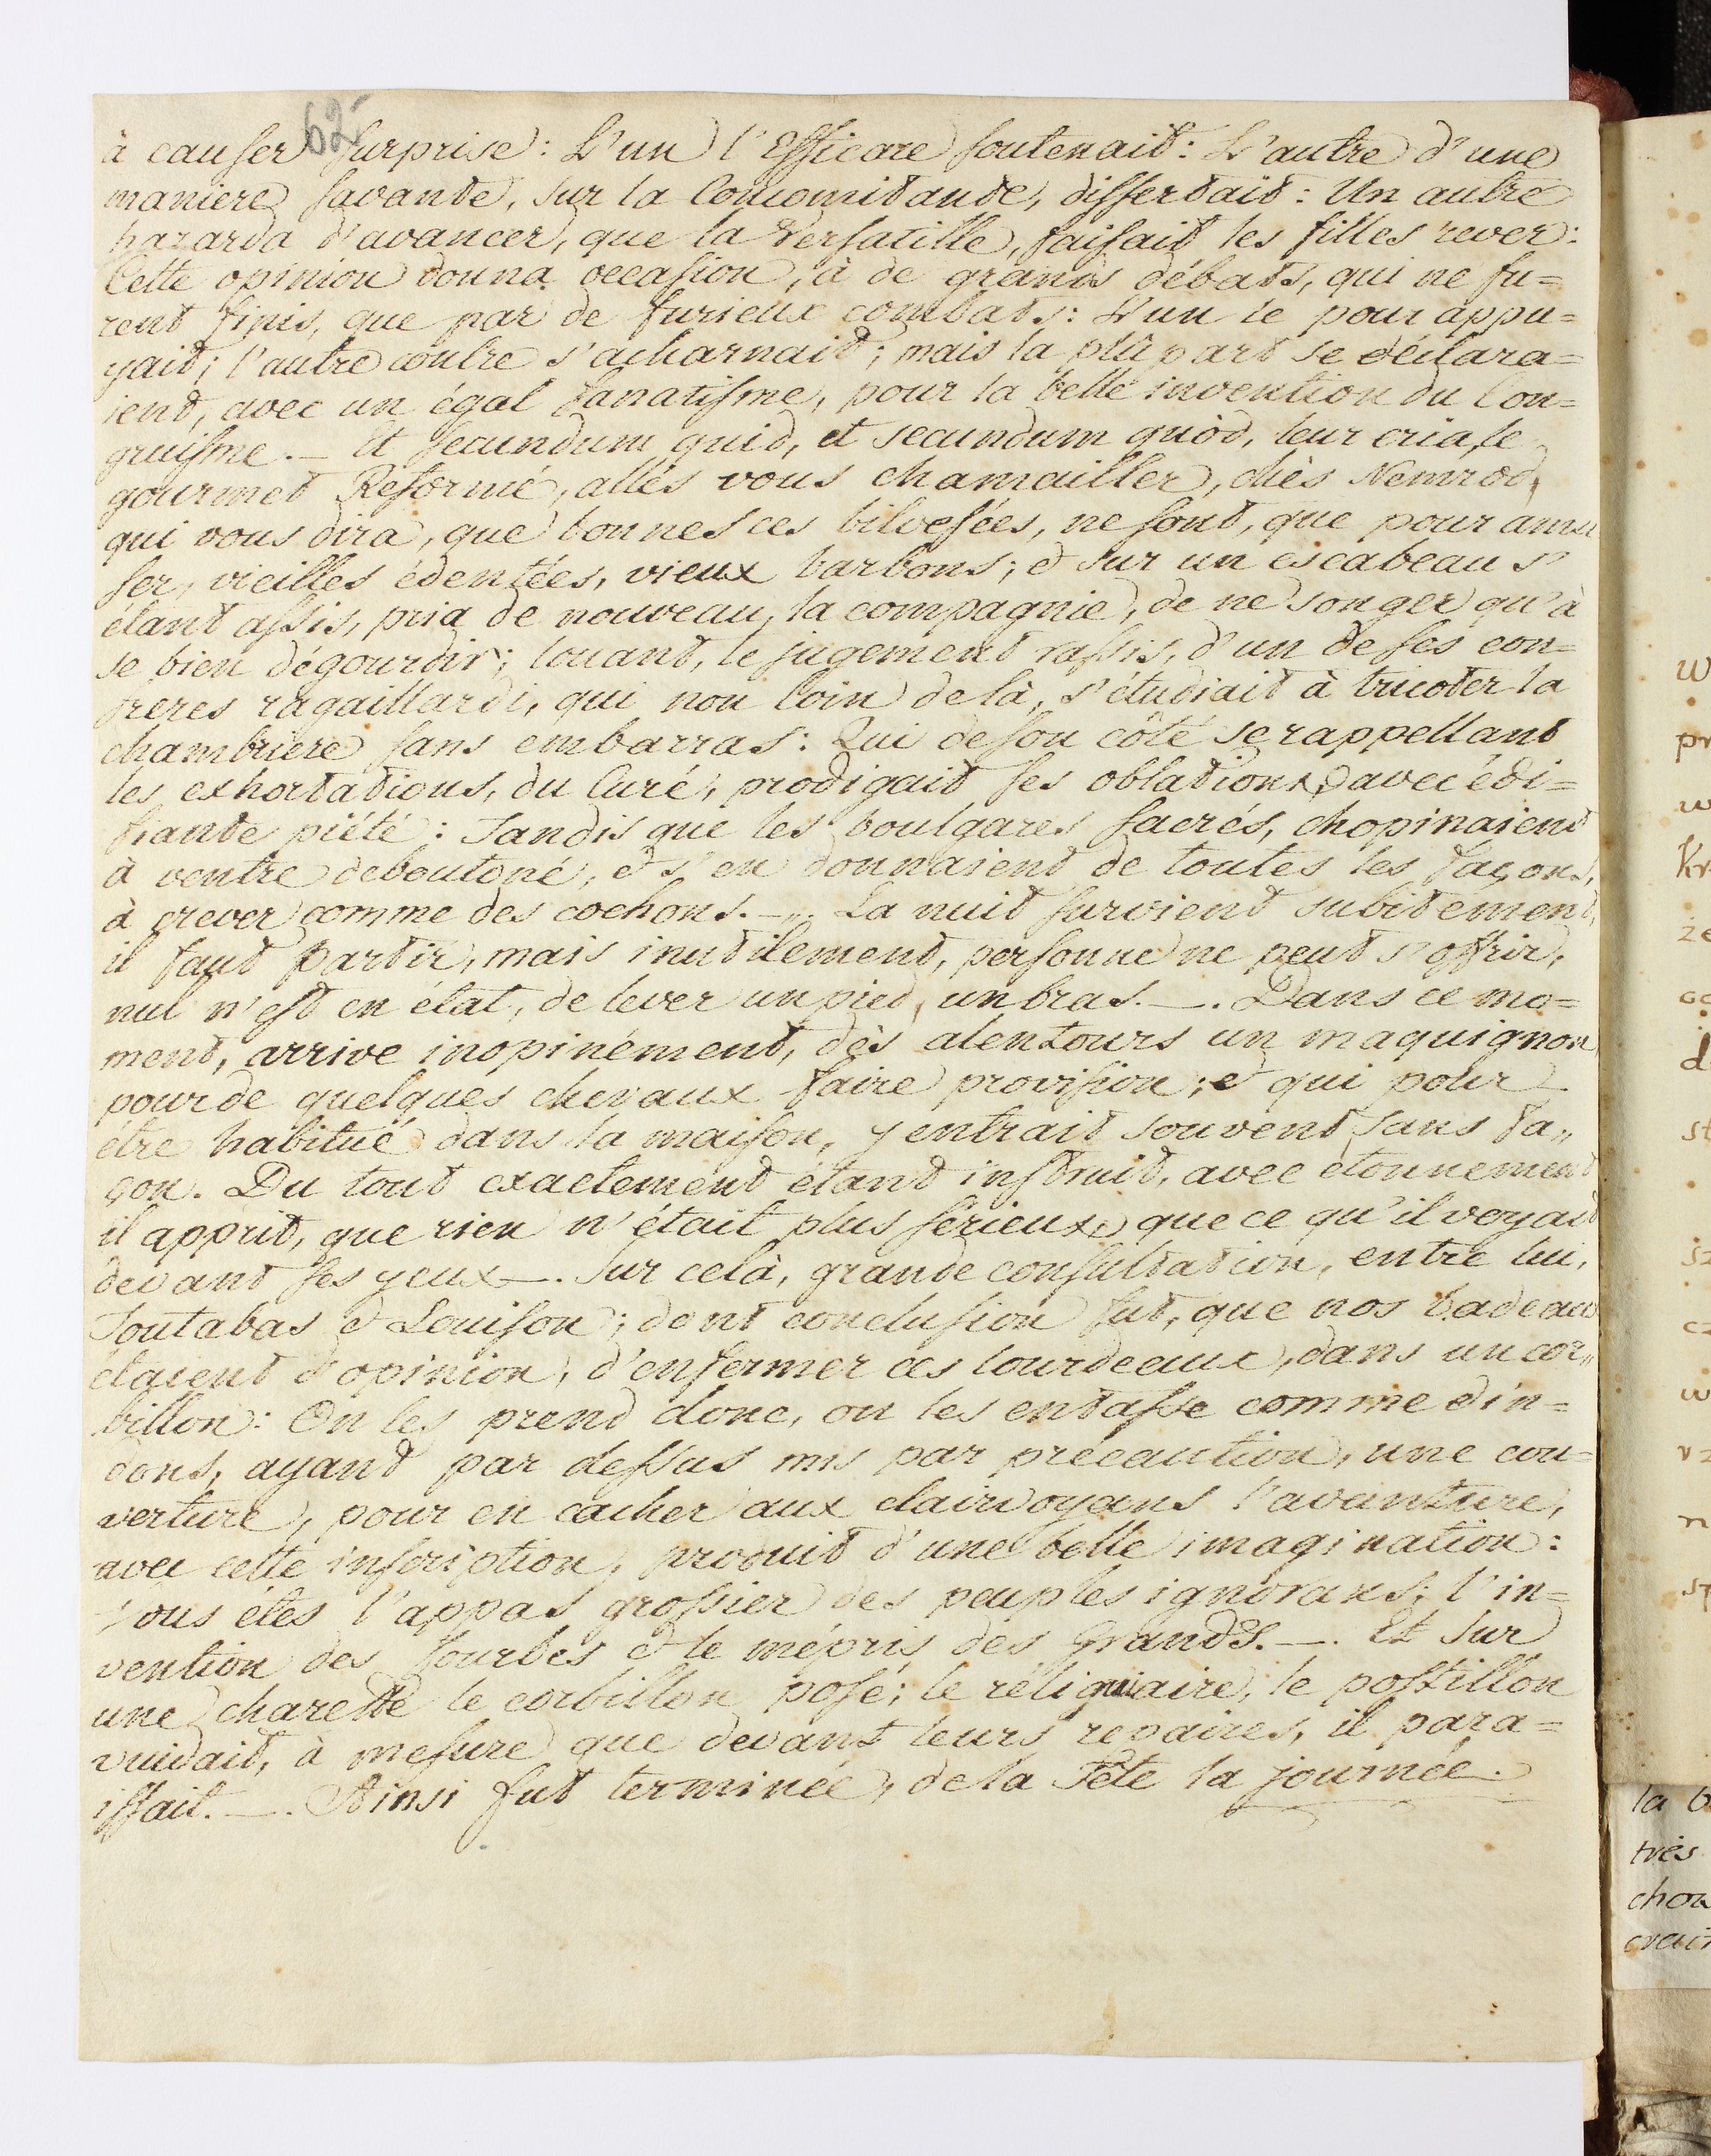 62
à causer surprise: L'un l'Efficace soutenait: L'autre d'une
maniere savante, sur la Concomitante, dissertait: Un autre
hazarda d'avancer, que la Versatille, faisait les filles rever:
Cette opinion donna occasion, à de grands débats, qui ne fu=
rent finis, que par de furieux combats: L'un le pour appu=
yait; l'autre contre s'acharnait; mais la plûpart se déclara=
ient, avec un égal fanatisme, pour la belle invention du Con=
gruisme. — Et secundum quid, et secundum quod, leur cria le
gourmet Reformé, allés vous chamailler, chès Nemrod,
qui vous dira, que bonnes ces bilvesées, ne sont, que pour amu
ser, vieilles édentées, vieux barbons; et sur un escabeau s'
étant assis, pria de nouveau, la compagnie, de ne songer qu'à
se bien dégourdir; louant, le jugement rassis, d'un de ses con=
freres ragaillardi, qui non loin de là, s'étudiait à tricoter la
chambriere sans embarras: Qui de son côté se rappellant
les exhortations, du Curé, prodigait ses oblations, avec édi=
fiante piété: Tandis que les boulgares sacrés, chopinaient
à ventre deboutoné, et s'en donnaient de toutes les façons,
à crever comme des cochons. —. La nuit survient subitement,
il faut partir, mais inutilement, personne ne peut s'offrir,
nul n'est en état, de lever un pied, un bras. —. Dans ce mo=
ment, arrive inopinément, dès alentours un maquignon
pour de quelques chevaux faire provision; et qui pour
être habitué dans la maison, y entrait souvent sans fa„
çon. Du tout exactement étant instruit, avec etonnement
il apprit, que rien n'était plus sérieux, que ce qu'il voyait
devant ses yeux —. Sur celà, grande consultation, entre lui,
Toutabas et Louison; dont conclusion fut, que nos badeaux
étaient d'opinion, d'enfermer ces lourdeaux, dans un cor„
billon: On les prend donc, on les entasse comme din=
dons, ayant par dessus mis par précaution, une cou=
verture, pour en cacher aux clairvoyans l'avanture,
avec cette inscription, produit d'une belle imagination:
Vous étes l'appas grossier des peuples ignorans; l'in=
vention des fourbes et le mépris des Grands. —. Et sur
une charette le corbillon posé; le réliquiaire, le postillon
vuidait, à mesure que devant leurs repaires, il para=
issait. —. Ainsi fut terminée, de la Fête la journée.